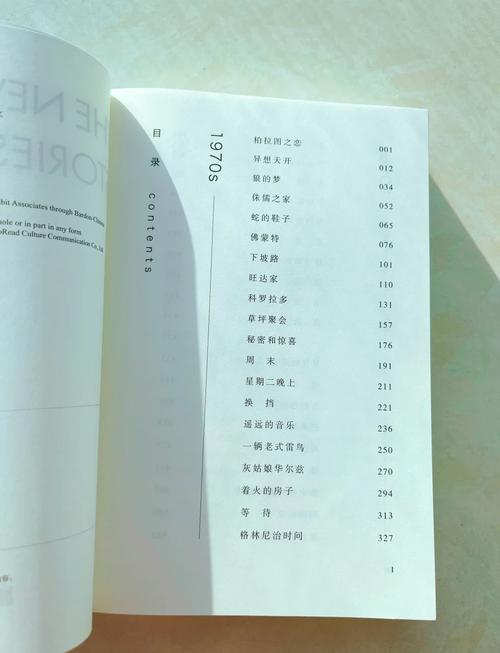 bit Associates through Bardon-Chinese
hole or in part in any form
oRead Culture Communication Co., Ltd.
目录 contents
1970s
柏拉图之恋 001
异想天开 012
狼的梦 034
侏儒之家 052
蛇的鞋子 065
佛蒙特 076
下坡路 101
旺达家 110
科罗拉多 131
草坪聚会 157
秘密和惊喜 176
周 末 191
星期二晚上 211
换 挡 221
遥远的音乐 236
一辆老式雷鸟 250
灰姑娘华尔兹 270
着火的房子 294
等 待 313
格林尼治时间 327
1